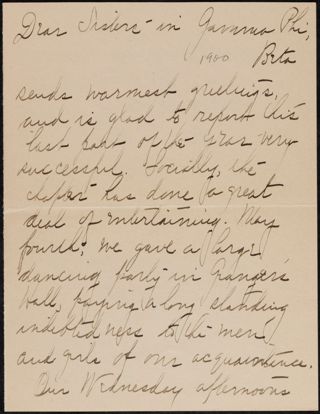 Dear Sisters in Gamma Phi,
1900 Beta
sends warmest greetings,
and is glad to report this
last part of the year very
successful. Socially, the
chapter has done a great
deal of entertaining. May
fourth, we gave a large
dancing party in Granger's
hall, paying a long standing
indebtedness to the men
and girls of our acquaintence.
Our Wednesday afternoons